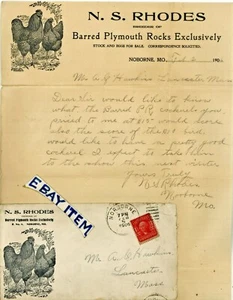 N. S. RHODES
BREEDER OF
Barred Plymouth Rocks Exclusively
STOCK AND EGGS FOR SALE. CORRESPONDENCE SOLICITED.
NORBORNE, MO. Feb 6 190
Mr A. G. Hawkins Lancaster Mass
Dear Sir would like to know
what the Barred P.R. cockerels you
priced to me at $15 would score
also the score of that bird
would like to have a pretty good
cockerel I expect to take him
to the show this next winter
Yours Truly
N S Rhodes
Norborne
Mo
EBAY ITEM
N. S. RHODES
BREEDER OF
Barred Plymouth Rocks Exclusively
NORBORNE, MO.
NORBORNE
Mr A. G. Hawkins
Lancaster
Mass